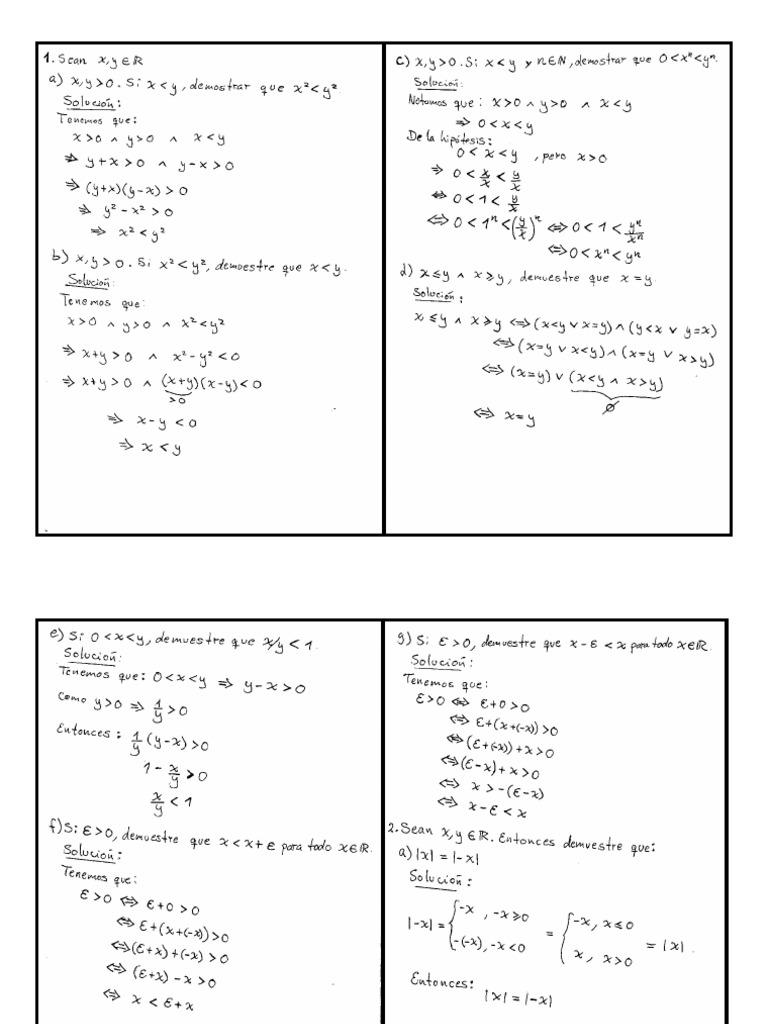 1. Sean x,y ∈ ℝ
a) x,y>0. Si x<y, demostrar que x²<y²
Solución:
Tenemos que:
x>0 ∧ y>0 ∧ x<y
⇒ y+x>0 ∧ y-x>0
⇒ (y+x)(y-x)>0
⇒ y²-x²>0
⇒ x²<y²
b) x,y>0. Si x²<y², demuestre que x<y.
Solución:
Tenemos que:
x>0 ∧ y>0 ∧ x²<y²
⇒ x+y>0 ∧ x²-y²<0
⇒ x+y>0 ∧ (x+y)(x-y)<0
>0
⇒ x-y<0
⇒ x<y
c) x,y>0. Si x<y y n∈ℕ, demostrar que 0<xⁿ<yⁿ.
Solución:
Notamos que: x>0 ∧ y>0 ∧ x<y
⇒ 0<x<y
De la hipótesis:
0<x<y, pero x>0
⇒ 0<x/x<y/x
⇔ 0<1<y/x
⇔ 0<1ⁿ<(y/x)ⁿ ⇔ 0<1<yⁿ/xⁿ
⇔ 0<xⁿ<yⁿ
d) x≤y ∧ x≥y, demuestre que x=y.
Solución:
x≤y ∧ x≥y ⇔ (x<y ∨ x=y) ∧ (y<x ∨ y=x)
⇔ (x=y ∨ x<y) ∧ (x=y ∨ x>y)
⇔ (x=y) ∨ (x<y ∧ x>y)
∅
⇔ x=y
e) Si 0<x<y, demuestre que x/y<1.
Solución:
Tenemos que: 0<x<y ⇒ y-x>0
Como y>0 ⇒ 1/y>0
Entonces: 1/y (y-x)>0
1-x/y>0
x/y<1
f) Si ε>0, demuestre que x<x+ε para todo x∈ℝ.
Solución:
Tenemos que:
ε>0 ⇔ ε+0>0
⇔ ε+(x+(-x))>0
⇔ (ε+x)+(-x)>0
⇔ (ε+x)-x>0
⇔ x<ε+x
g) Si ε>0, demuestre que x-ε<x para todo x∈ℝ.
Solución:
Tenemos que:
ε>0 ⇔ ε+0>0
⇔ ε+(x+(-x))>0
⇔ (ε+(-x))+x>0
⇔ (ε-x)+x>0
⇔ x>-(ε-x)
⇔ x-ε<x
2. Sean x,y∈ℝ. Entonces demuestre que:
a) |x|=|-x|
Solución:
|-x| = { -x, -x≥0 = { -x, x≤0 = |x|.
-(-x), -x<0 x, x>0
Entonces:
|x|=|-x|